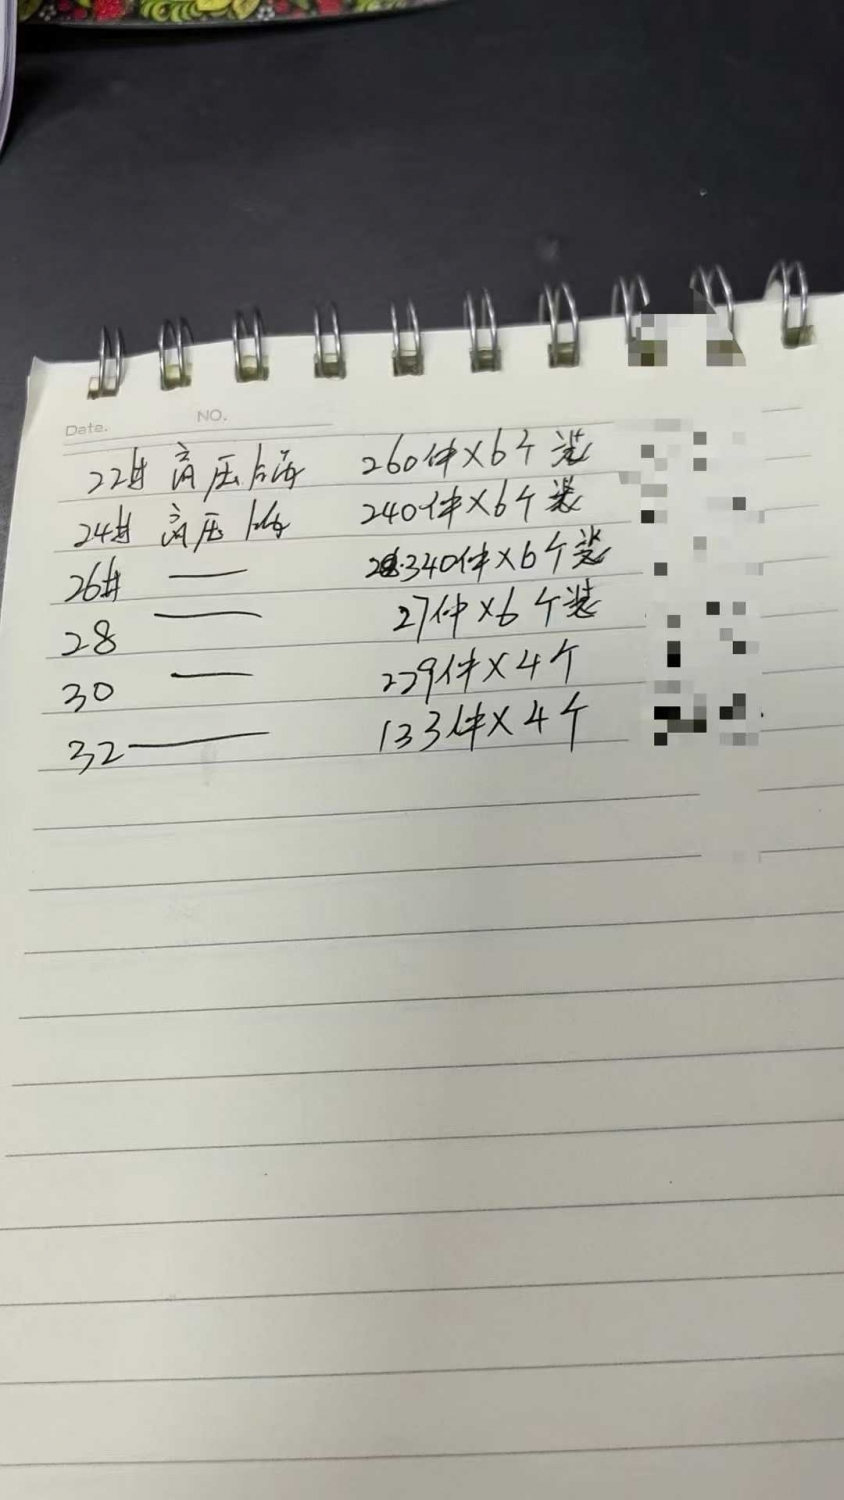 Date. NO.
22# 高压锅 260件×6个装
24# 高压锅 240件×6个装
26# —— 340件×6个装
28 —— 27件×6个装
30 —— 229件×4个
32 —— 133件×4个